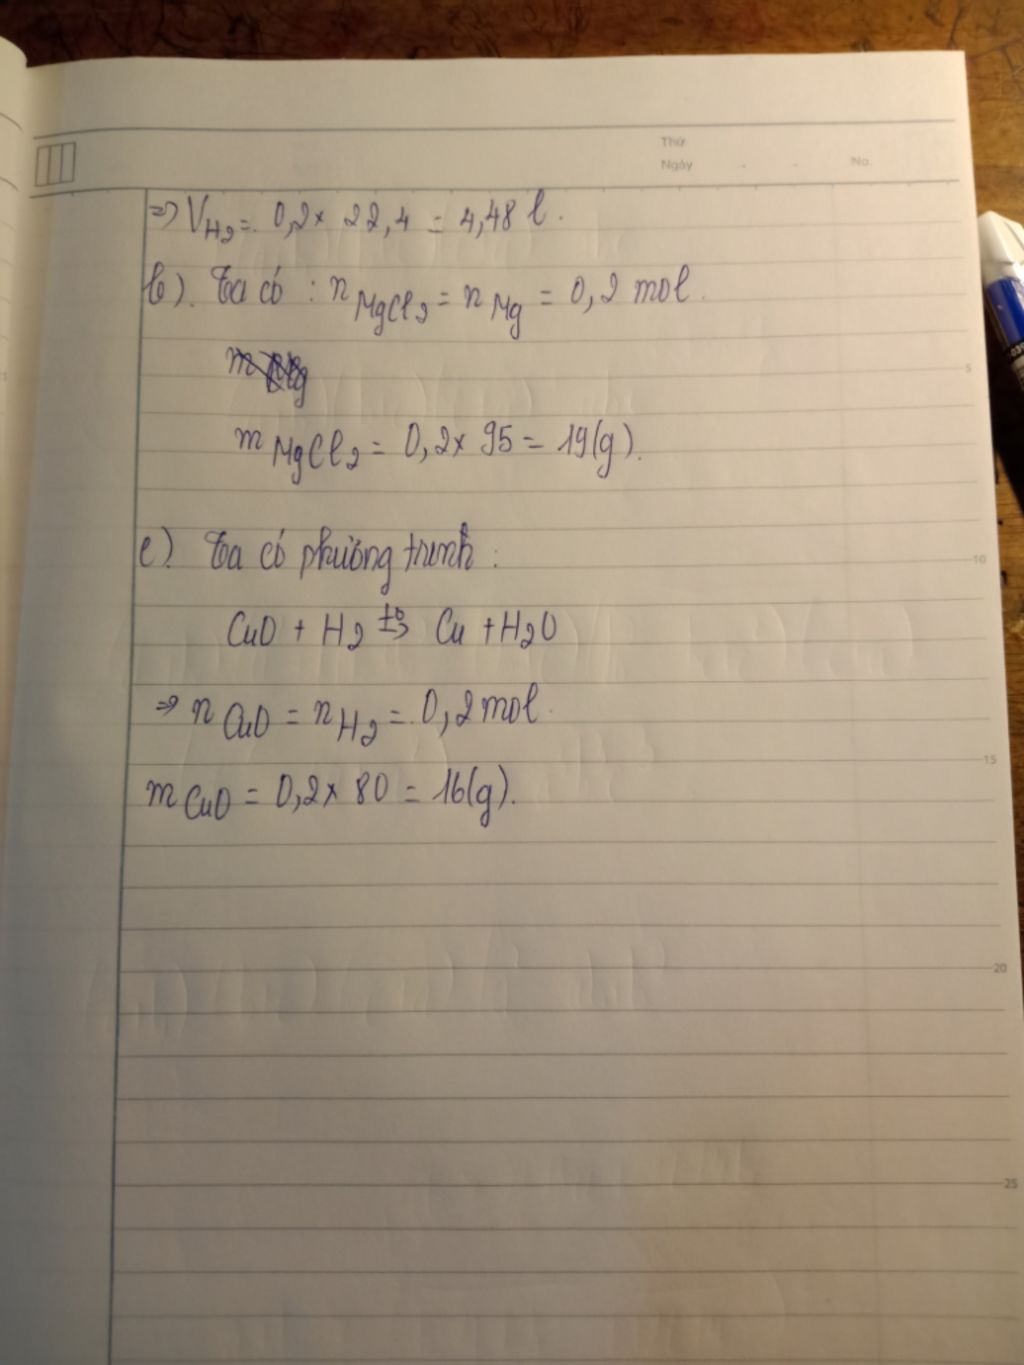 Thứ
Ngày - - No.
=> V H2 = 0,2 x 22,4 = 4,48 l.
b). Ta có : n MgCl2 = n Mg = 0,2 mol.
m MgCl2 = 0,2 x 95 = 19(g).
c) Ta có phương trình :
CuO + H2 t° → Cu + H2O
=> n CuO = n H2 = 0,2 mol.
m CuO = 0,2 x 80 = 16(g).
5
10
15
20
25